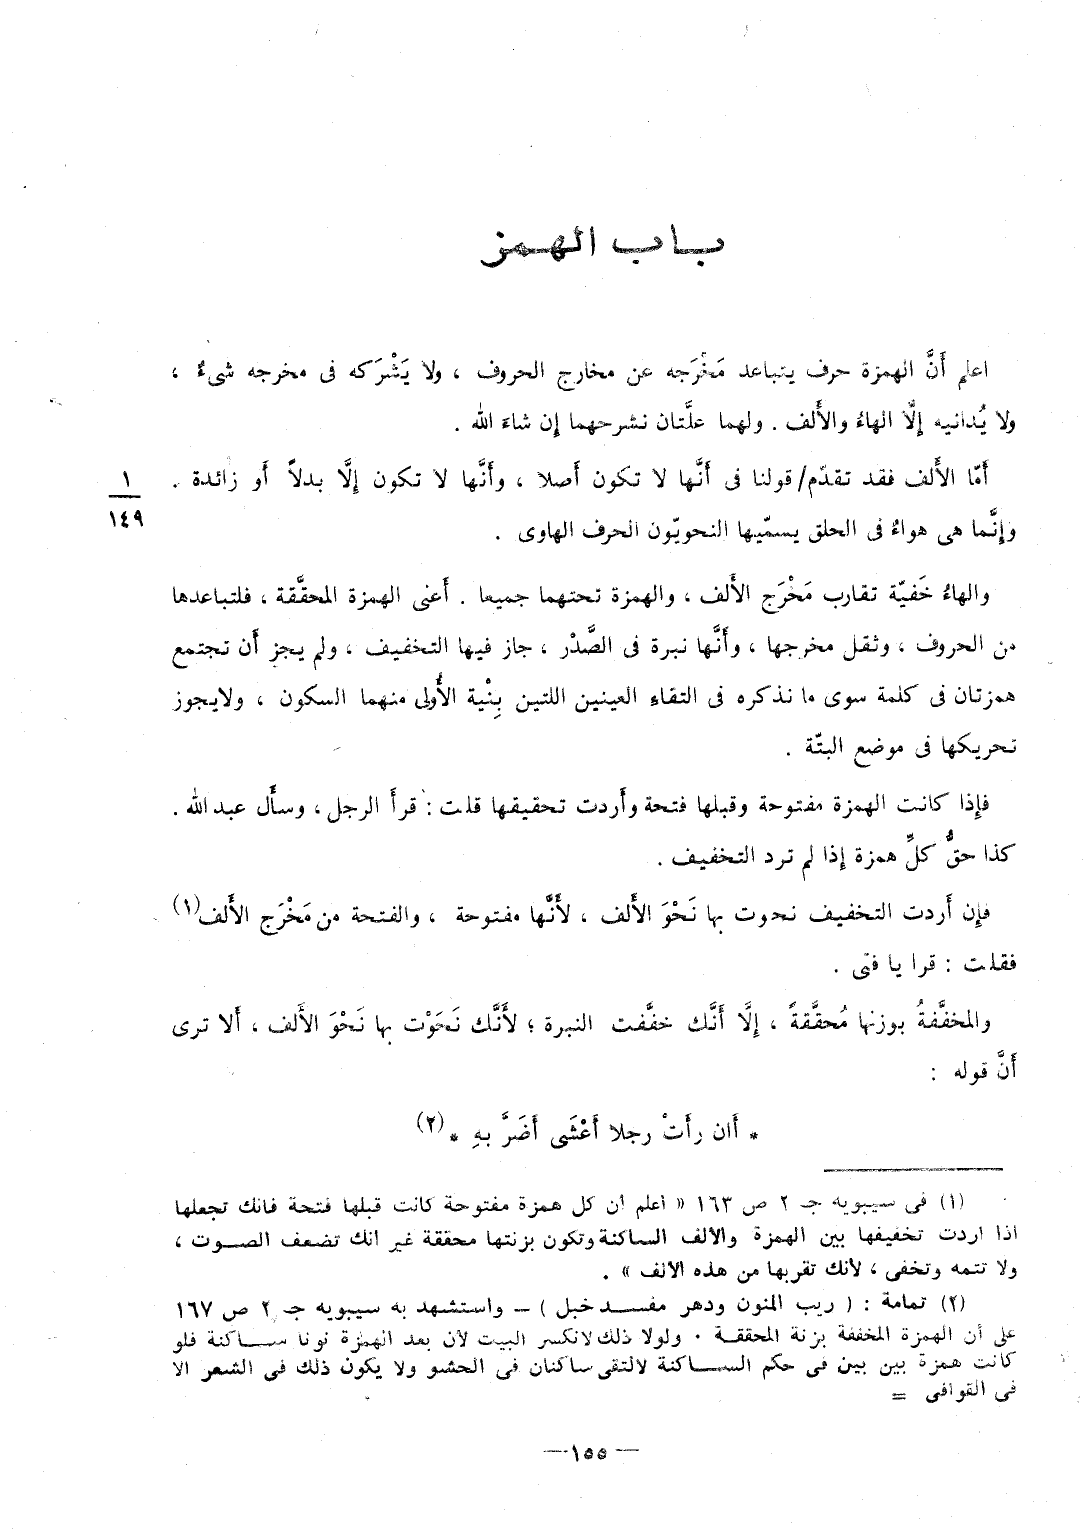 باب الهمز
اعلم أَنَّ الهمزة حرف يتباعد مَخْرَجه عن مخارج الحروف ، ولا يَشْرَكه فى مخرجه شىءٌ ،
ولا يُدانيه إِلَّا الهاءُ والأَلف . ولهما علَّتان نشرحهما إِن شاءَ الله .
أَمّا الأَلف فقد تقدّم/ قولنا فى أَنَّها لا تكون أَصلا ، وأَنَّها لا تكون إِلَّا بدلاً أَو زائدة .
١
١٤٩
وإِنَّما هى هواءٌ فى الحلق يسمّيها النحويّون الحرف الهاوى .
والهاءُ خَفيّة تقارب مَخْرَج الأَلف ، والهمزة تحتهما جميعا . أَعنى الهمزة المحقَّقة ، فلتباعدها
من الحروف ، وثقل مخرجها ، وأَنَّها نبرة فى الصَّدْر ، جاز فيها التخفيف ، ولم يجز أَن تجتمع
همزتان فى كلمة سوى ما نذكره فى التقاءِ العينين اللتين بِنْية الأُولى منهما السكون ، ولايجوز
تحريكها فى موضع البتّة .
فإِذا كانت الهمزة مفتوحة وقبلها فتحة وأَردت تحقيقها قلت : قرأَ الرجل ، وسأَل عبد الله .
كذا حقُّ كلِّ همزة إِذا لم ترد التخفيف .
فإِن أَردت التخفيف نحوت بها نَحْوَ الأَلف ، لأَنَّها مفتوحة ، والفتحة من مَخْرَج الأَلف(١)
فقلت : قرا يا فتى .
والمخفَّفةُ بوزنها مُحقَّقةً ، إِلَّا أَنَّك خفَّفت النبرة ؛ لأَنَّك نَحَوْت بها نَحْوَ الأَلف ، أَلا ترى
أَنَّ قوله :
* أَان رأَتْ رجلا أَعْشَى أَضَرَّ بهِ *(٢)
(١) فى سيبويه جـ ٢ ص ١٦٣ « اعلم أن كل همزة مفتوحة كانت قبلها فتحة فانك تجعلها
اذا اردت تخفيفها بين الهمزة والالف الساكنة وتكون بزنتها محققة غير انك تضعف الصوت ،
ولا تتمه وتخفى ، لأنك تقربها من هذه الالف » .
(٢) تمامة : ( ريب المنون ودهر مفسد خبل ) – واستشهد به سيبويه جـ ٢ ص ١٦٧
على أن الهمزة المخففة بزنة المحققة . ولولا ذلك لانكسر البيت لأن بعد الهمزة نونا ساكنة فلو
كانت همزة بين بين فى حكم الساكنة لالتقى ساكنان فى الحشو ولا يكون ذلك فى الشعر الا
فى القوافى =
— ١٥٥ —